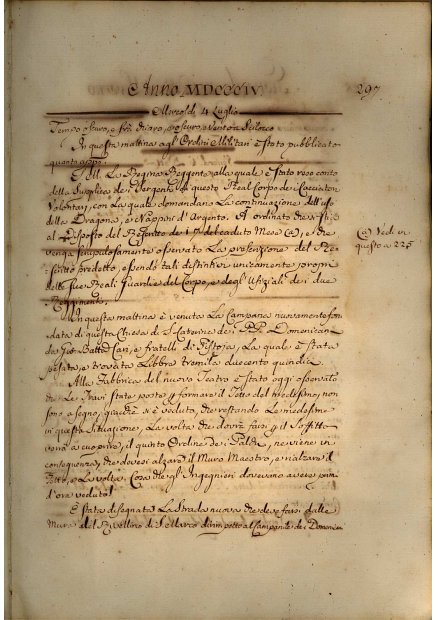 Anno MDCCCIV
297
Mercoldì 4 Luglio
Tempo oscuro, e frà chiaro, oscuro, e Vento a Scilocco
In questa mattina agl' Ordini Militari è stato pubblicato
quanto app.o
S. M. La Regina Reggente alla quale è stato reso conto
della Supplica dei Sergenti di questo Real Corpo dei Cacciatori
Volontari, con la quale domandano La Continuazione dell' uso
della Dragona, e Nappon d'Argento. A ordinato che si stia
al disposto del del decaduto Mese (a), e che
venga scrupolosamente osservato La prescrizione del Re=
scritto predetto, essendo tali distintivi unicamente propri
delle sue Reali Guardie del Corpo, e degl' Ufiziali dei due
Reggimenti.
(a) Vedi in
questo a 225
In questa mattina è venuta La Campana nuovamente fon=
data di questa Chiesa di S. Caterina dei PP. Domenicani
da Gio: Batta e fratelli di Pistoja, La quale è stata
pesata, e trovata Libbre tremila duecento quindici
Alla Fabbrica del nuovo Teatro è stato oggi osservato
che Le Travi state poste p formare il Tetto del medesimo, non
sono a segno, giacchè si è veduto, che restando Le medesime
in questa Situazione, La volta che dovrà farsi p il Soffitto
verrà a cuoprire il quinto Ordine dei Palchi, ne viene in
conseguenza, che dovesi alzare il Muro Maestro, e rialzare il
Tetto, e La Volta. Cosa che gl' Ingegnieri dovevano avere prima
d'ora veduto!
È stata disegnata La Strada nuova che deve farsi dalle
Mura del Rivellino di S. Marco dirimpetto al Campanile dei Domenica